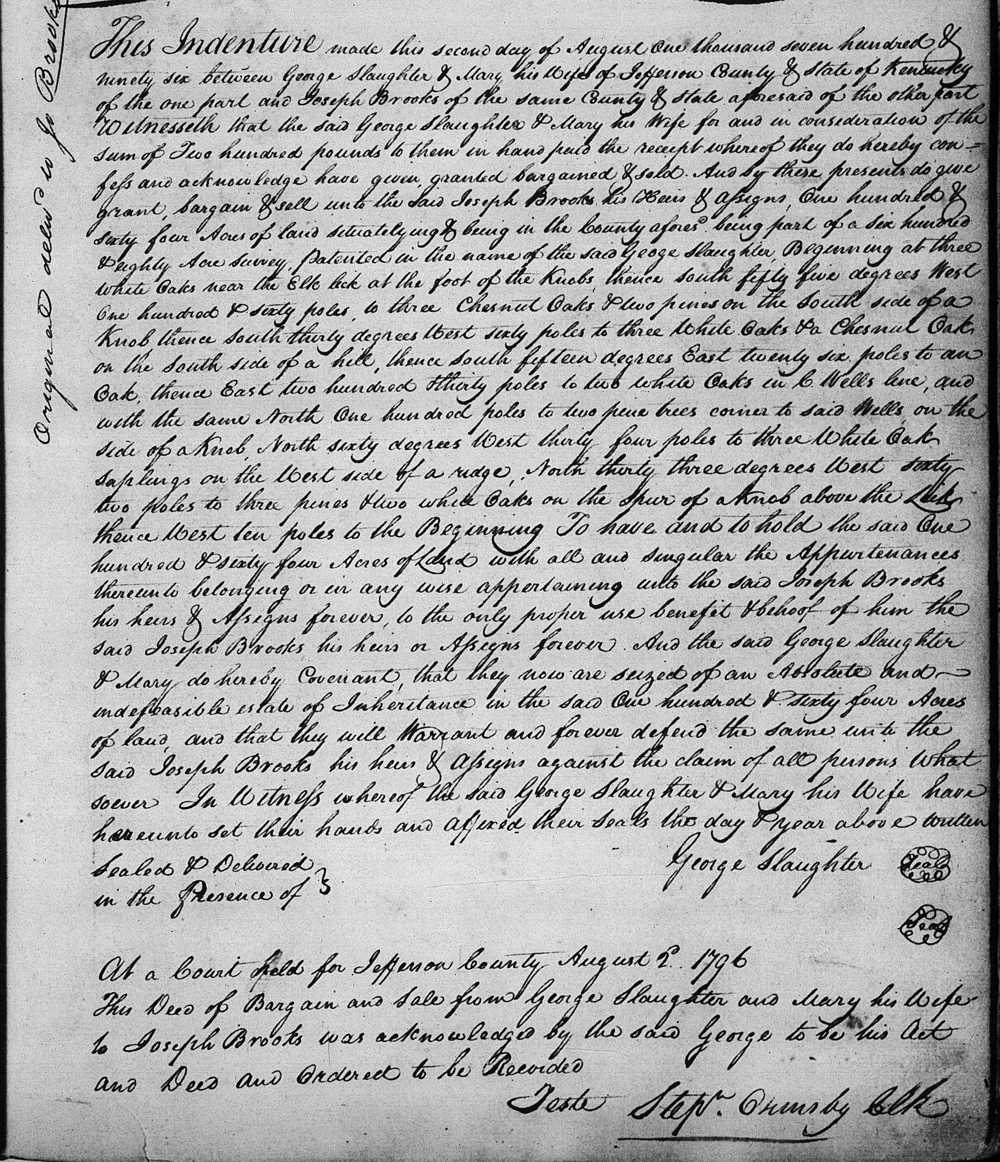 Original deliv^d to Jo Brooks
This Indenture made this second day of August One thousand seven hundred &
ninety six between George Slaughter & Mary his Wife of Jefferson County & state of Kentucky
of the one part and Joseph Brooks of the same County & state aforesaid of the other part
Witnesseth that the said George Slaughter & Mary his Wife for and in consideration of the
sum of Two hundred pounds to them in hand paid the receipt whereof they do hereby con-
fess and acknowledge have given, granted bargained & sold. And by these presents do give
grant, bargain & sell unto the said Joseph Brooks, his Heirs & Assigns, One hundred &
sixty four Acres of land situate lying & being in the County afores^d being part of a six hundred
& eighty Acre survey, Patented in the name of the said George Slaughter, Beginning at three
white Oaks near the Elk lick at the foot of the Knobs, thence south fifty five degrees West
One hundred & sixty poles, to three Chesnut Oaks & two pines on the south side of a
Knob thence south thirty degrees West sixty poles to three White Oaks & a Chesnut Oak
on the South side of a hill, thence south fifteen degrees East twenty six poles to an
Oak, thence East two hundred & thirty poles to two white Oaks in C Wells line, and
with the same North One hundred poles to two pine trees corner to said Wells, on the
side of a Knob, North sixty degrees West thirty four poles to three White Oak
saplings on the West side of a ridge, North thirty three degrees West sixty
two poles to three pines & two white Oaks on the Spur of a Knob above the Lick
thence West ten poles to the Beginning To have and to hold the said One
hundred & sixty four Acres of Land with all and singular the Appurtenances
thereunto belonging or in any wise appertaining unto the said Joseph Brooks
his heirs & Assigns forever, to the only proper use benefit & behoof of him the
said Joseph Brooks, his heirs or Assigns forever. And the said George Slaughter
& Mary do hereby Covenant, that they now are seized of an Absolute and
indefeasible estate of Inheritance in the said One hundred & sixty four Acres
of land, and that they will Warrant and forever defend the same unto the
said Joseph Brooks his heirs & Assigns against the claim of all persons what
soever In Witness whereof the said George Slaughter & Mary his Wife have
hereunto set their hands and affixed their Seals the day & year above written
Sealed & Delivered
in the Presence of }
George Slaughter Seal
Seal
At a Court held for Jefferson County August 2^d. 1796
This Deed of Bargain and Sale from George Slaughter and Mary his Wife
to Joseph Brooks was acknowledged by the said George to be his Act
and Deed and Ordered to be Recorded
Teste Step^n. Ormsby Clk